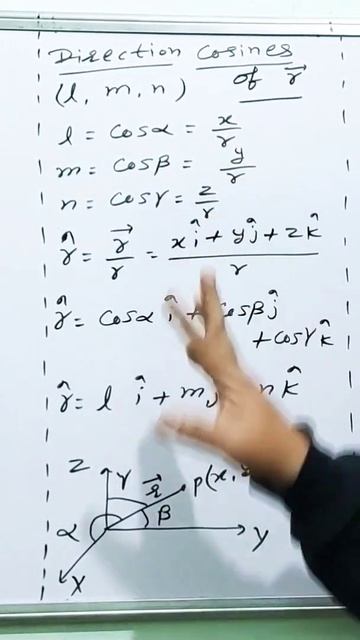 Direction Cosines
(l, m, n) of r⃗
l = cosα = x/r
m = cosβ = y/r
n = cosγ = z/r
r̂ = r⃗/r = (xî + yĵ + zk̂)/r
r̂ = cosα î + cosβ ĵ
+ cosγ k̂
r̂ = l î + m n k̂
Z γ r⃗ P(x,
α β Y
X